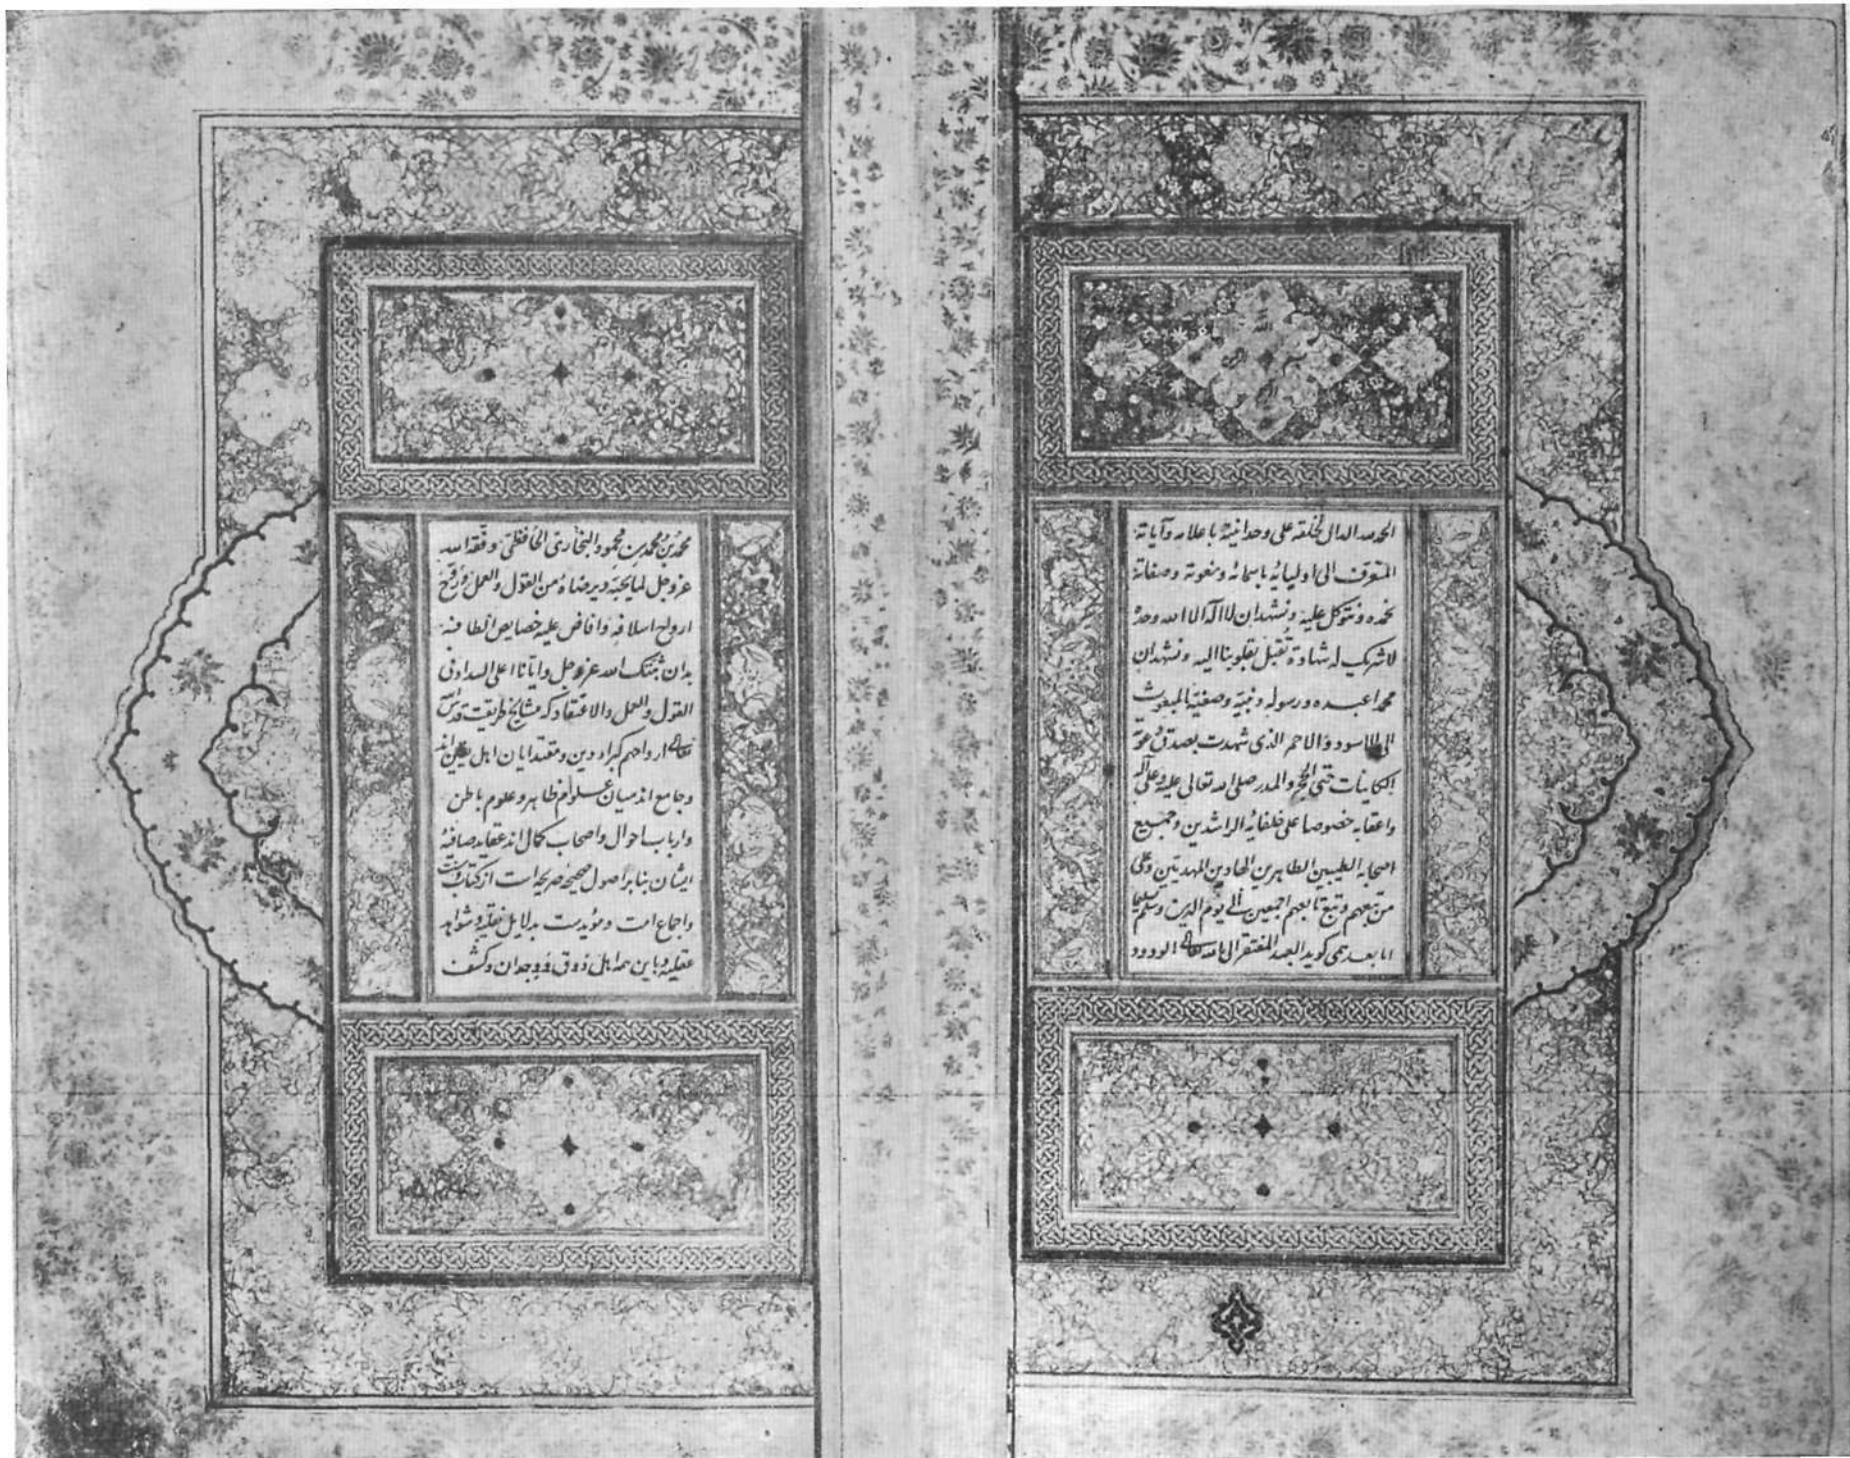 الحمد لله الدال لخلقه على وحدانيته باعلامه وآياته
المتعرف الى اوليائه باسمائه ونعوته وصفاته
نحمده ونتوكل عليه ونشهد ان لا اله الا الله وحده
لا شريك له شهادة نقبل بقلوبنا اليه ونشهد ان
محمدا عبده ورسوله ونبيه وصفيه المبعوث
الى الاسود والاحمر الذى شهدت بصدق دعوته
الكاینات حتى الحجر والمدر صلى الله تعالى عليه وعلى آله
واعقابه خصوصا على خلفائه الراشدين وجميع
اصحابه الطيبين الطاهرين الهادين المهديين وعلى
من تبعهم وتبع تابعهم اجمعين الى يوم الدين وسلم تسليما
اما بعد می کوید العبد المفتقر الى الله تعالى الودود
محمد بن محمد بن محمود البخارى الحافظى وفقه الله
عز وجل لما يحبه ويرضاه من القول والعمل وروّح
ارواح اسلافه وافاض عليه خصایص الطافه
بدان ثبتک الله عز وجل وایانا على السداد فى
القول والعمل والاعتقاد که مشایخ طریقت قدس الله
تعالى ارواحهم کبراء دین ومقتدایان اهل یقین اند
وجامع اند میان علوم ظاهر وعلوم باطن
وارباب احوال واصحاب کمال اند عقاید صافیهٔ
ایشان بنابر اصول صحیحه صریحه است از کتاب وسنت
واجماع امت ومؤیدست بدلایل نقلیه وشواهد
عقلیه وباین همه اهل ذوق ووجدان وکشف